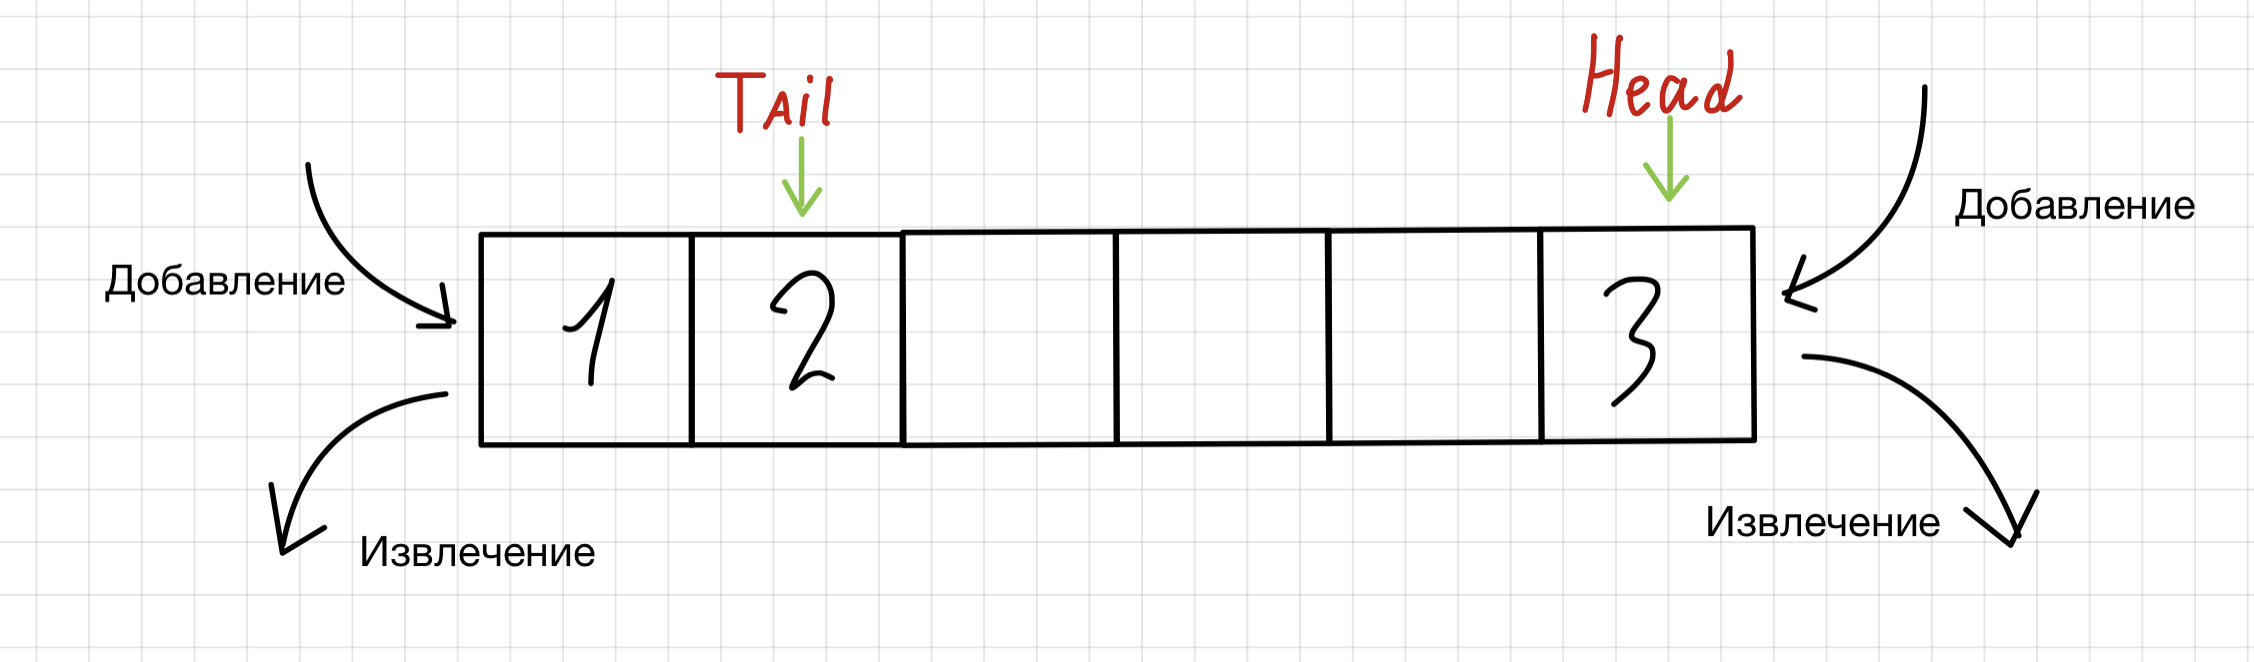 Tail
Head
Добавление
Добавление
1 2 3
Извлечение
Извлечение